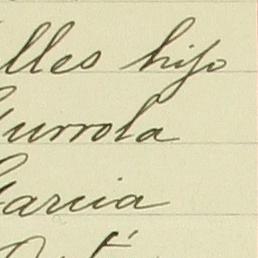 lles hijo
Gurrola
Garcia